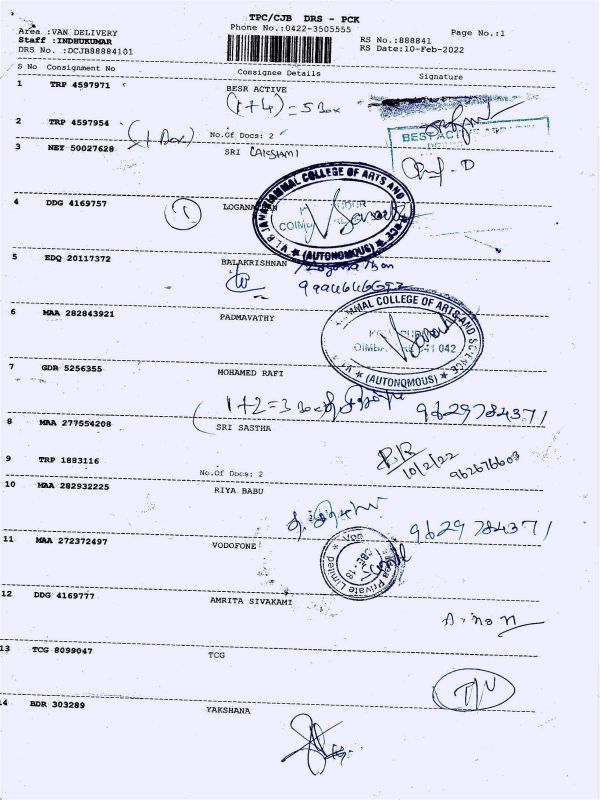 TPC/CJB DRS - PCK
Phone No.:0422-3505555
Page No.:1
Area :VAN DELIVERY
Staff :INDHUKUMAR
DRS No. :DCJB88884101
RS No.:888841
RS Date:10-Feb-2022
S No Consignment No Consignee Details Signature
1 TRP 4597971 BESR ACTIVE
(1+4)=5 Box
2 TRP 4597954 No.Of Docs: 2
3 NEY 50027628 SRI LAKSHMI
4 DDG 4169757 LOGANATHAN
JANAKIAMMAL COLLEGE OF ARTS AND
(AUTONOMOUS)
5 EDQ 20117372 BALAKRISHNAN
6 MAA 282843921 PADMAVATHY
COLLEGE OF ARTS AND SCIENCE
641 042
(AUTONOMOUS)
7 GDR 5256355 MOHAMED RAFI
1+2=3 Box 9629784371
8 MAA 277554208 SRI SASTHA
9 TRP 1883116 No.Of Docs: 2
10/2/22
10 MAA 282932225 RIYA BABU
9629784371
11 MAA 272372497 VODOFONE
Private Limited
12 DDG 4169777 AMRITA SIVAKAMI
13 TCG 8099047 TCG
14 BDR 303289 YAKSHANA